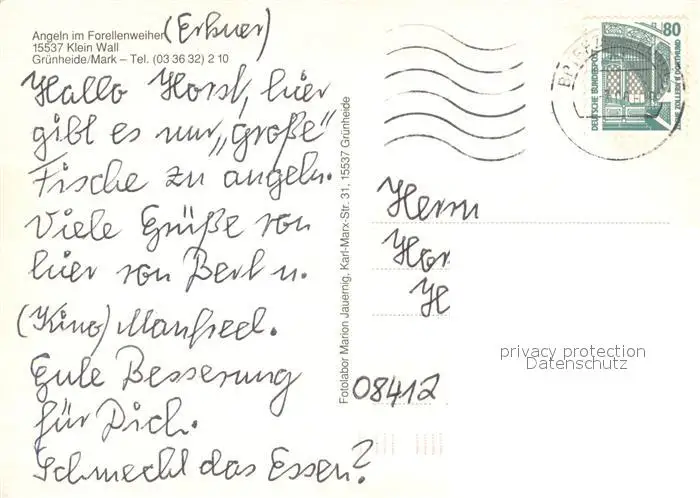 Angeln im Forellenweiher (Erkner)
15537 Klein Wall
Grünheide/Mark – Tel. (03 36 32) 2 10
Hallo Horst, hier
gibt es nur „große"
Fische zu angeln.
Viele Grüße von
hier von Bert u.
(Kino) Manfred.
Gute Besserung
für Dich.
Schmeckt das Essen?
Fotolabor Marion Jauernig, Karl-Marx-Str. 31, 15537 Grünheide
80
DEUTSCHE BUNDESPOST
ZECHE ZOLLERN II DORTMUND
Herrn
Hor
H
08412
privacy protection
Datenschutz